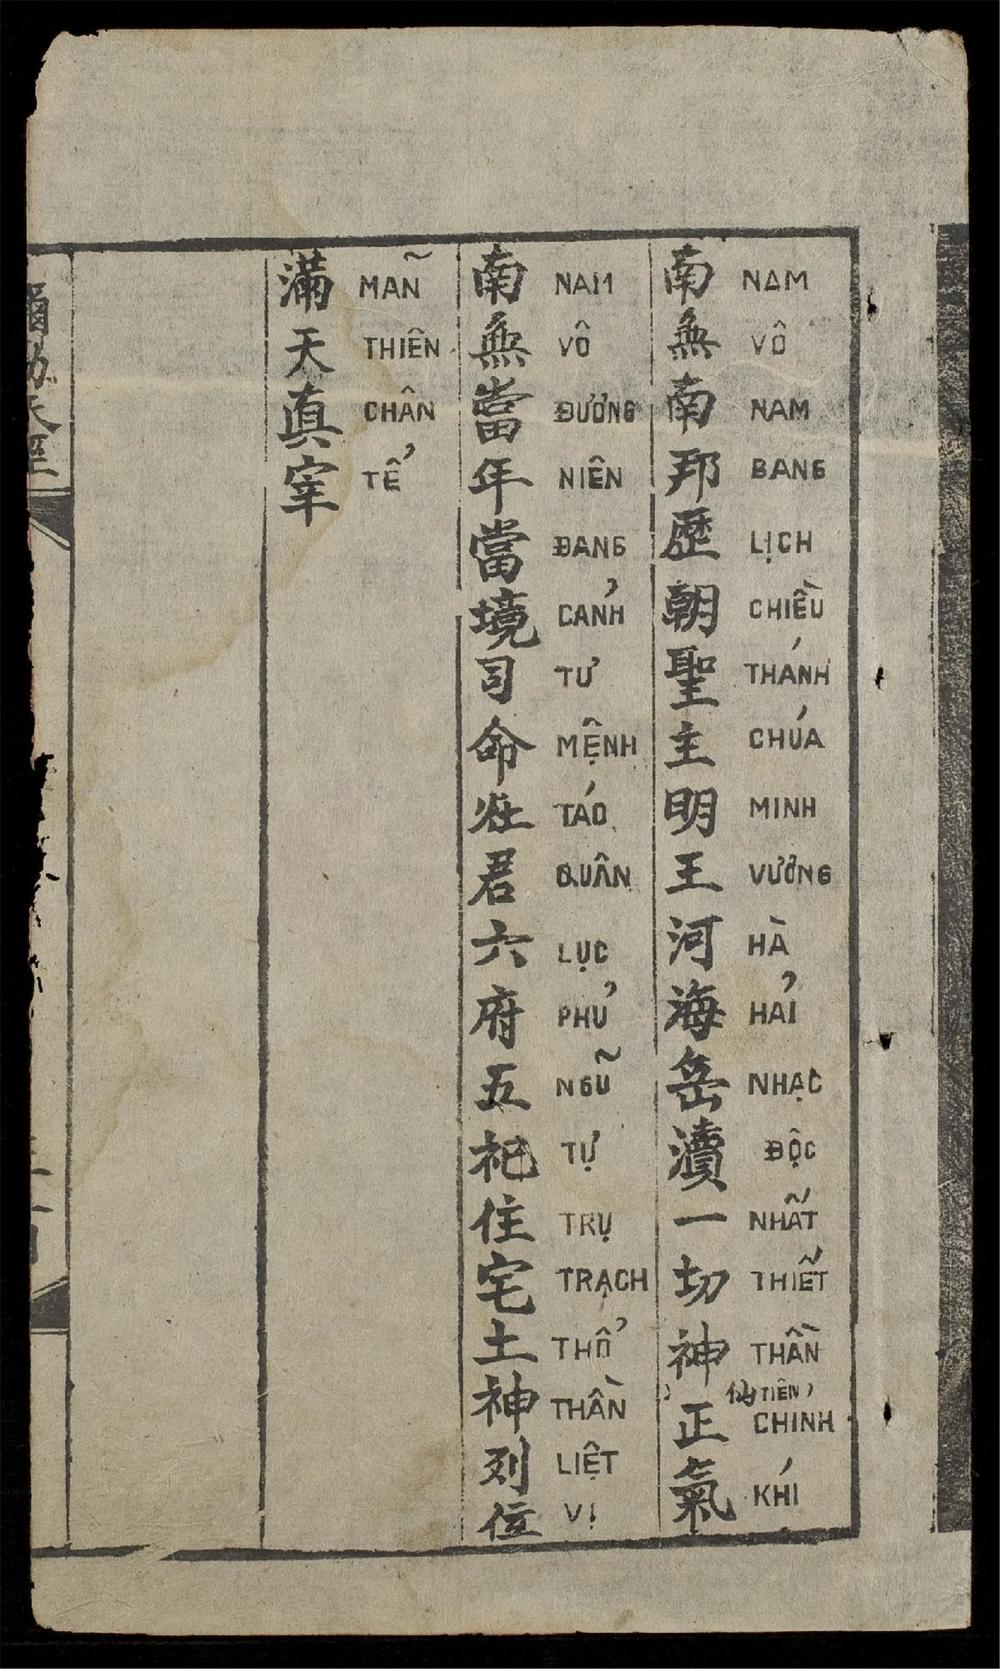 南無南邦歷朝聖主明王河海岳瀆一切神仙正氣
NAM VÔ NAM BANG LỊCH CHIỀU THÁNH CHÚA MINH VƯƠNG HÀ HẢI NHẠC ĐỘC NHẤT THIẾT THẦN TIÊN CHINH KHÍ
南無當年當境司命灶君六府五祀住宅土神列位
NAM VÔ ĐƯƠNG NIÊN ĐANG CẢNH TƯ MỆNH TÁO QUÂN LỤC PHỦ NGŨ TỰ TRỤ TRẠCH THỔ THẦN LIỆT VỊ
滿天真宰
MÃN THIÊN CHÂN TỂ